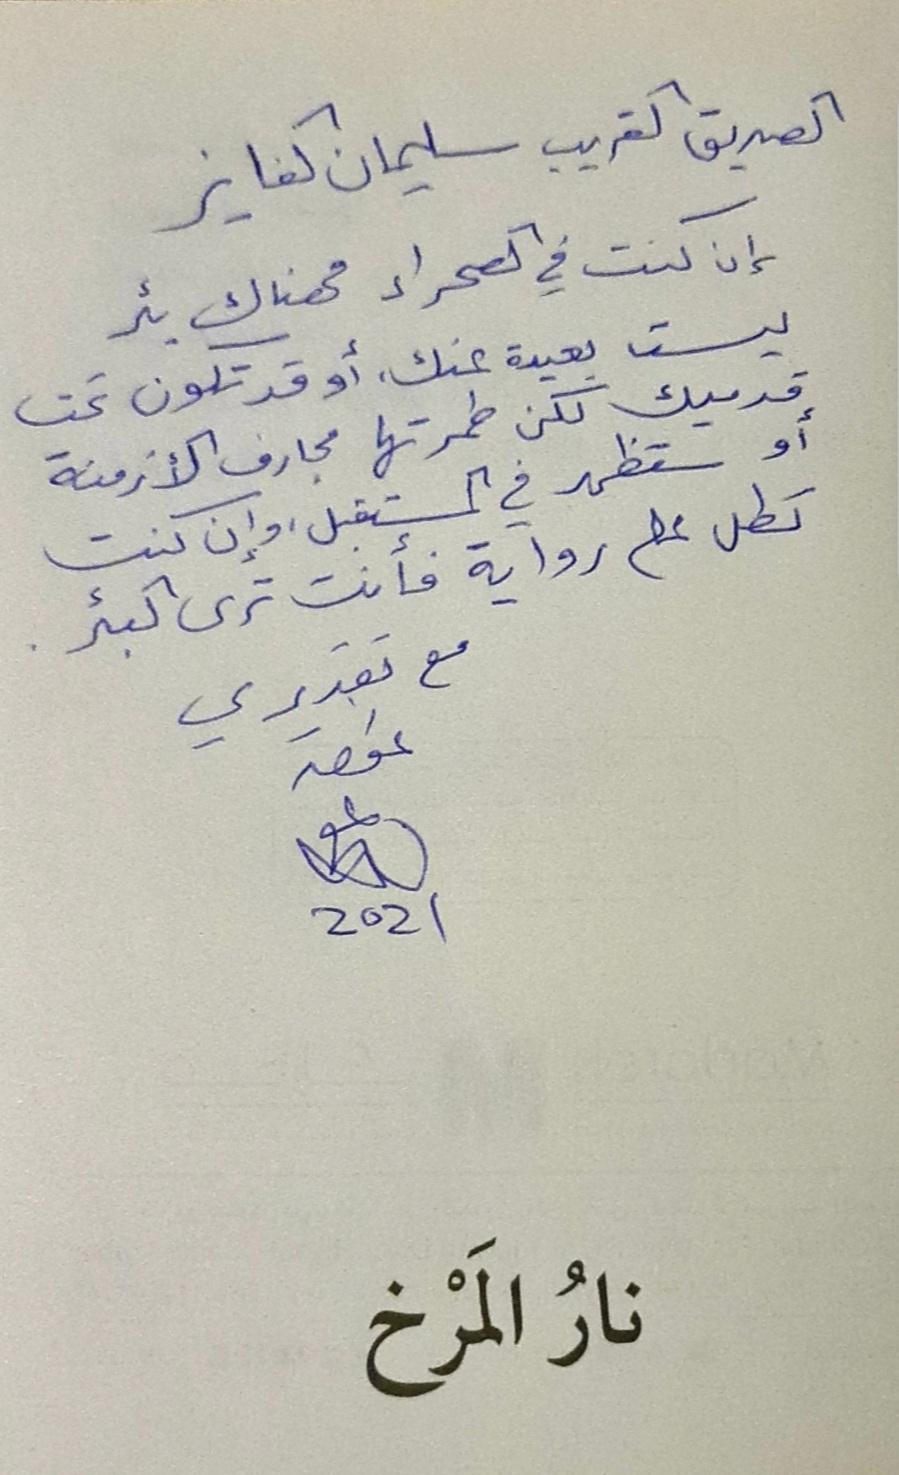 الصديق القريب سليمان الفايز
إن كنت في الصحراء فهناك بئر
ليست بعيدة عنك، أو قد تكون تحت
قدميك لكن طمرتها مجارف الأزمنة
أو ستظهر في المستقبل، وإن كنت
تطل على رواية فأنت ترى البئر.
مع تقديري
عواض
2021
نارُ المَرْخ